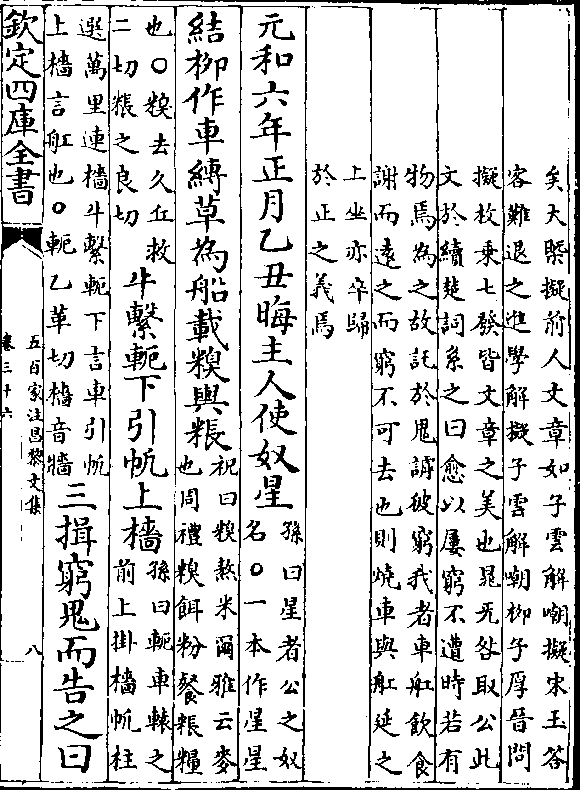 矣大槩擬前人文章如子雲解嘲擬宋玉答
客難退之進學解擬子雲解嘲柳子厚晉問
擬枚乘七發皆文章之美也晁旡咎取公此
文於續楚詞系之曰愈以屢窮不遭時若有
物焉為之故託於鬼謝彼窮我者車舡飲食
謝而遠之而窮不可去也則燒車與舡延之
上坐亦卒歸
於正之義焉
元和六年正月乙丑晦主人使奴星
孫曰星者公之奴
名〇一本作星星
結柳作車縛草為船載糗與粻
祝曰糗熬米爾雅云麥
也周禮糗餌粉餐粻糧
也〇糗去久丘救
二切粻之良切
牛繫軛下引帆上檣
孫曰軛車轅之
前上掛檣帆柱
選萬里連檣牛繫軛下言車引帆
上檣言舡也〇軛乙革切檣音牆
三揖窮鬼而告之曰
欽定四庫全書
五百家注昌黎文集
卷三十六
八